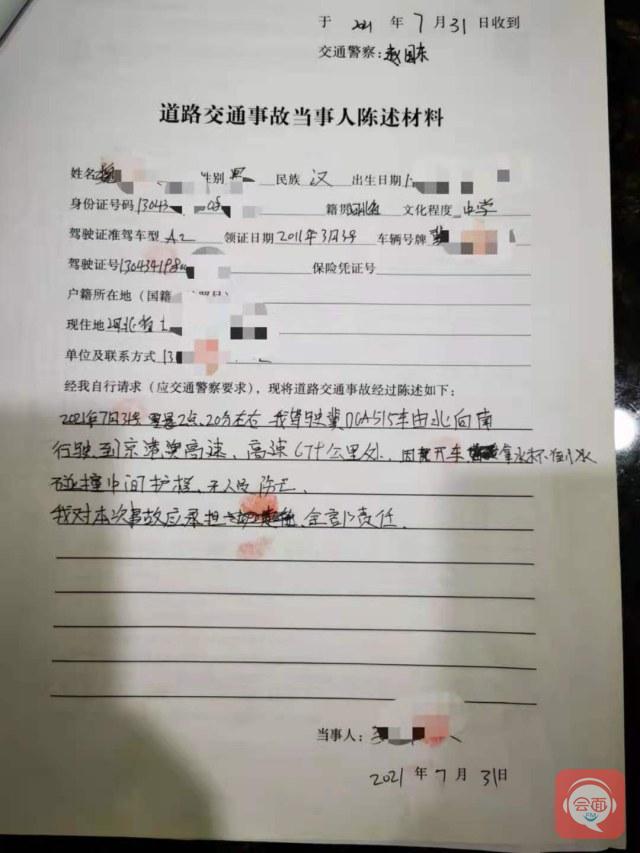 于 2021 年 7 月 31 日收到
交通警察:赵国东
道路交通事故当事人陈述材料
姓名 性别 男 民族 汉 出生日期 1
身份证号码 13043 籍贯 河北省 文化程度 中学
驾驶证准驾车型 A2 领证日期 2011年3月3号 车辆号牌 冀
驾驶证号 130434198 保险凭证号
户籍所在地(国籍
现住地 河北省
单位及联系方式 13
经我自行请求(应交通警察要求),现将道路交通事故经过陈述如下:
2021年7月31号 2点20分左右 我驾驶冀DGA515车由北向南
行驶到京港澳高速、高速674公里处、因 开车 拿水杯倒水
碰撞中间护栏、无人员伤亡、
我对本次事故应承担 全部责任、
当事人:
2021 年 7 月 31日
会面
FM